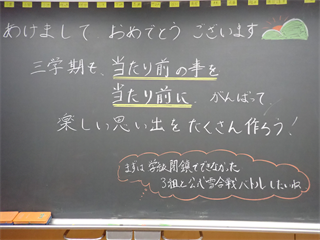 あけまして おめでとう ございます
三学期も、当たり前の事を
当たり前に がんばって
楽しい思い出を たくさん作ろう!
まずは 学級閉鎖でできなかった
3組と公式雪合戦バトルしたいね